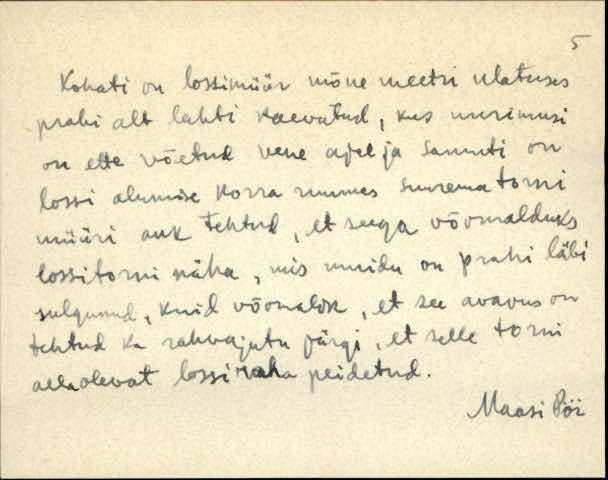 5
Kohati on lossimüür mõne meetri ulatuses
prahi alt lahti kaevatud, kus uurimusi
on ette võetud vene ajal ja samuti on
lossi alumise korra ruumes suurema torni
müüri auk tehtud, et seega võõrnalduks
lossitorni näha, mis muidu on prahi läbi
sulgunud, kuid võimalik, et see avavus on
tehtud ka rahvajutu järgi, et selle torni
all olevat lossi raha peidetud.
Maasi Pöi